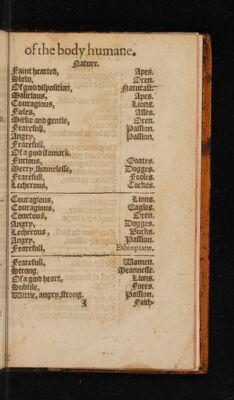 of the body humane.
Nature.
Faint hearted, Apes.
Slow, Oxen.
Of good disposition, Naturall.
Malicious, Apes.
Couragious, Lions.
Foles, Asses.
Meeke and gentle, Oxen.
Fearefull, Passion.
Angry, Passion.
Fearefull,
Of a good stomack
Furious, Goates.
Merry, shamelesse, Dogges.
Fearefull, Fooles.
Lecherous, Cockes.
Couragious, Lions.
Couragious, Eagles.
Couetous, Oxen.
Angry, Dogges.
Lecherous, Bucks.
Angry, Passion.
Fearefull, Ethiopians.
Fearefull, Women.
Strong, Meannesse.
Of a good heart, Lions.
Subtile, Foxes.
Wittie, angry, strong. Passion.
I Faith-